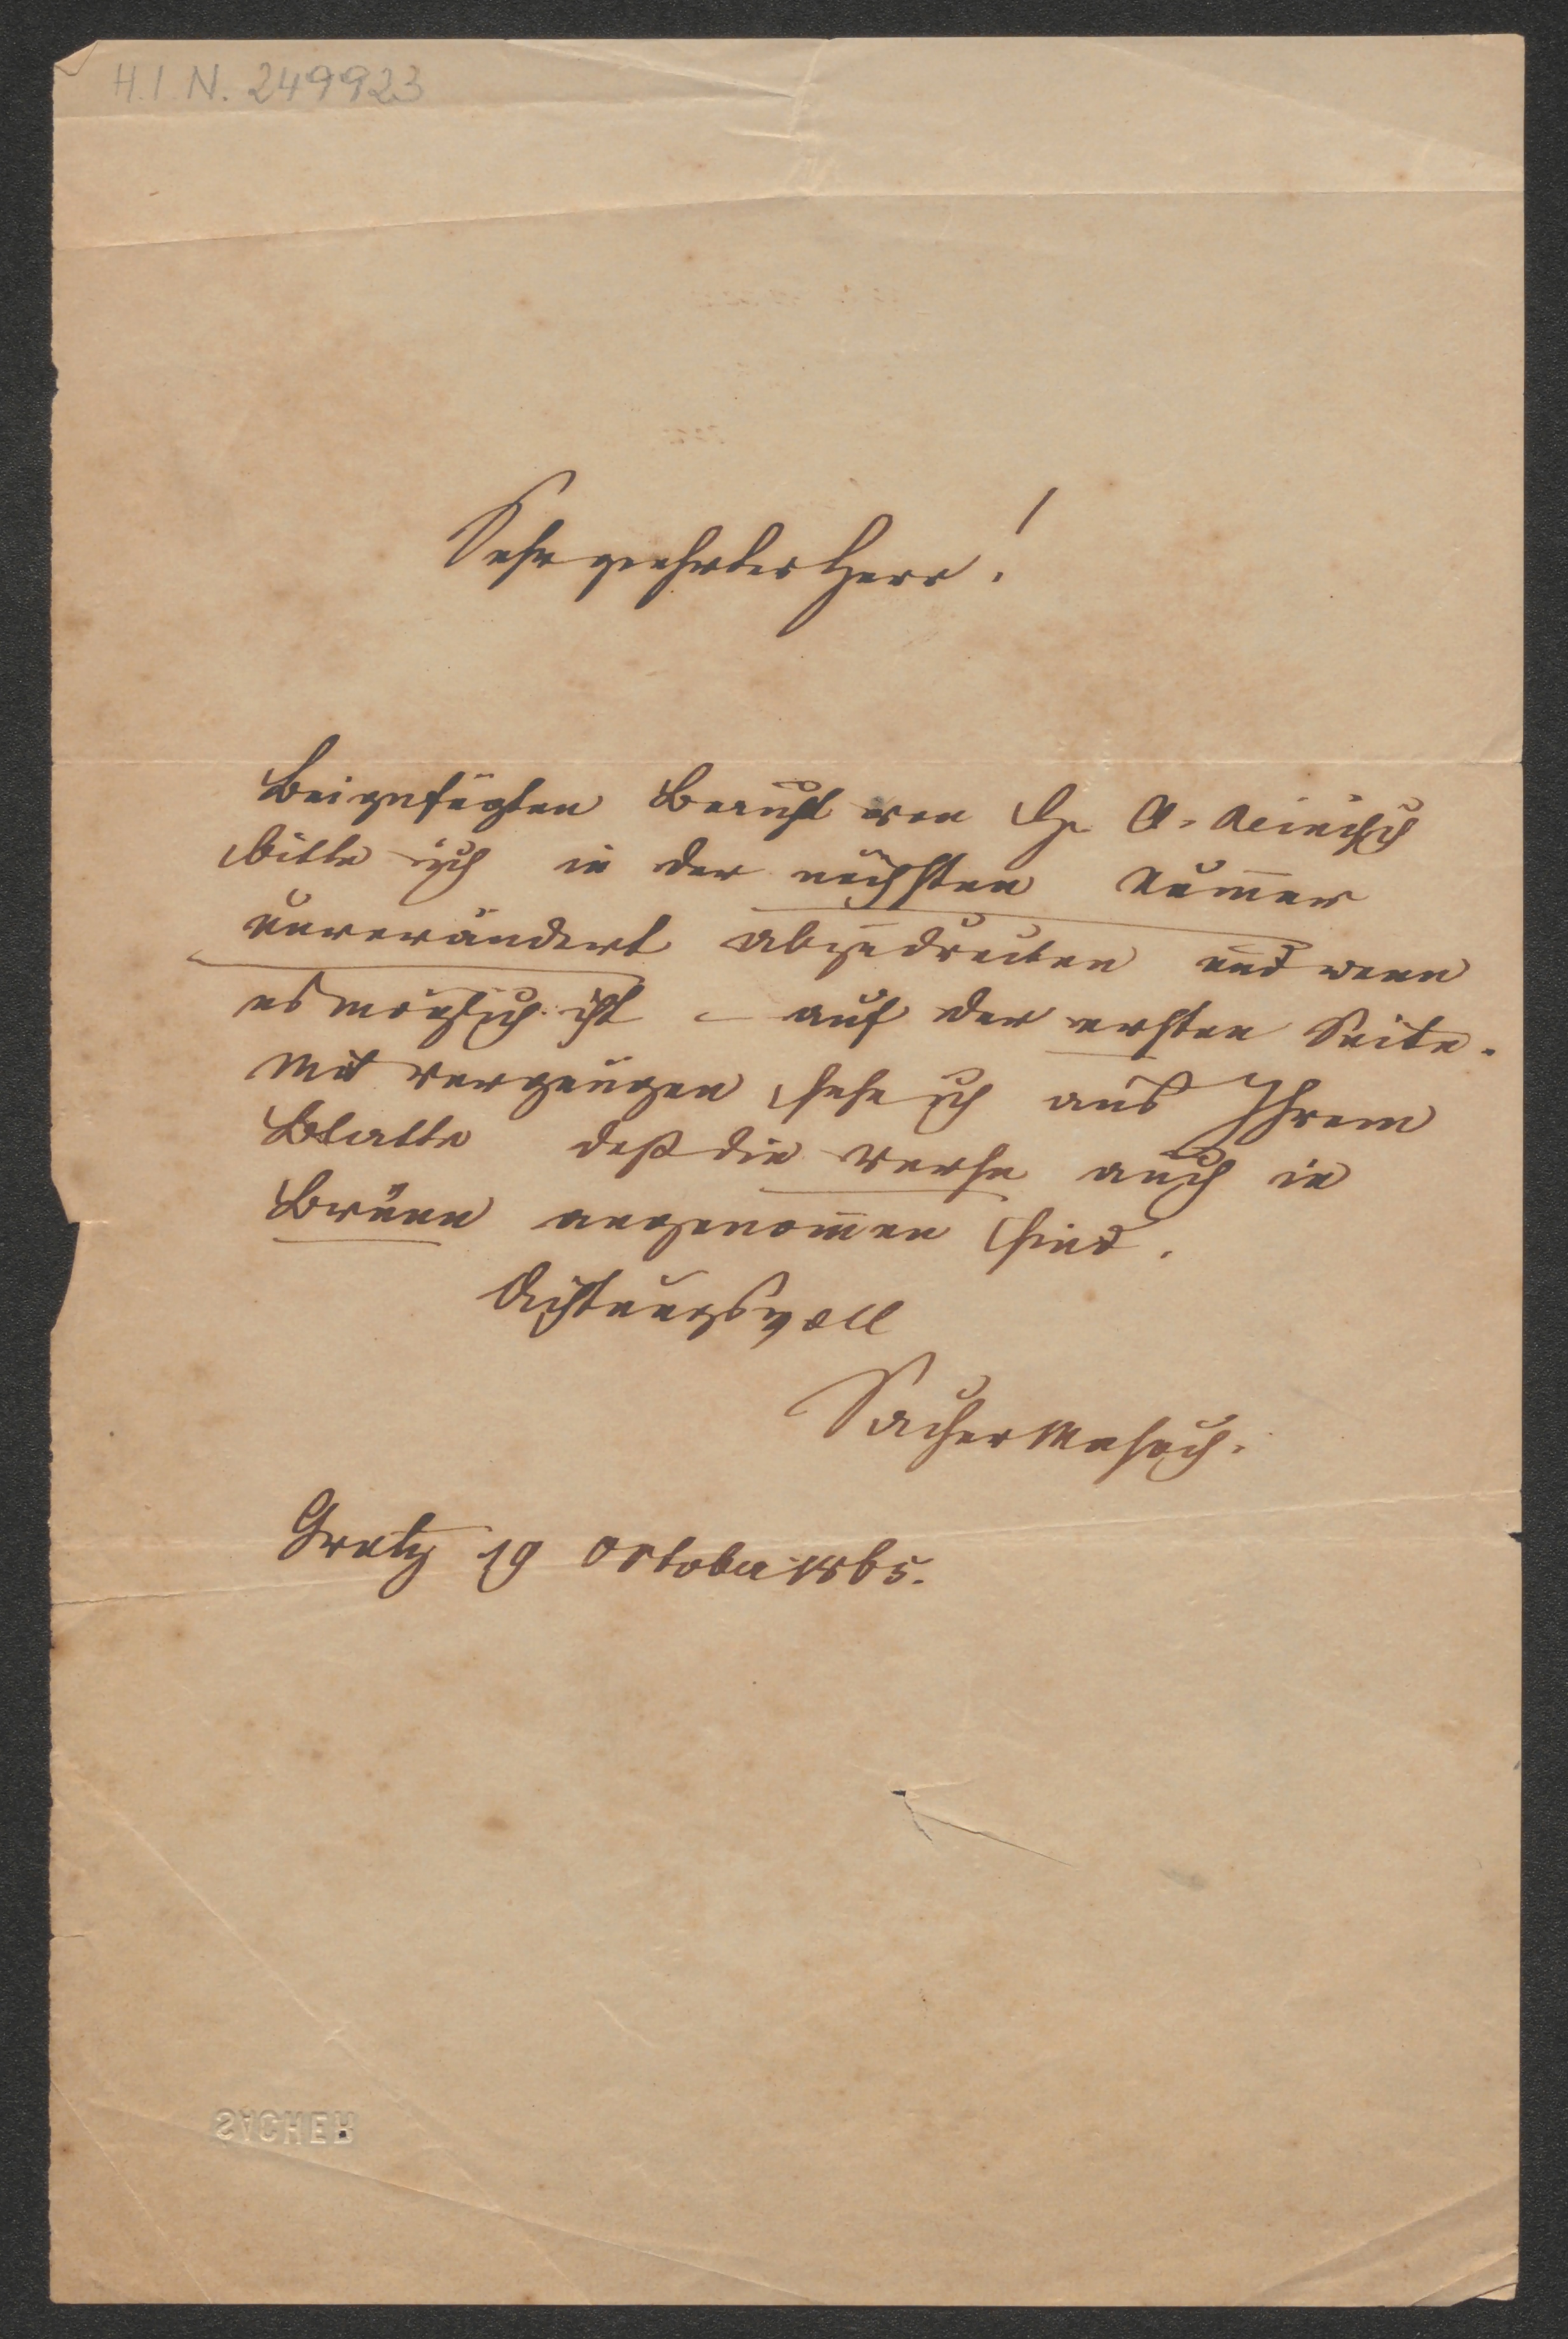 H.I.N. 249923
Sehr geehrter Herr!
Beigefügten Bericht von Hr. A.
bitte ich in der nächsten Num̅er
unverändert abzudrucken und wenn
es möglich ist – auf der ersten Seite.
Mit Vergnügen sehe ich aus Ihrem
Blatte daß die Verse auch in
Brünn angenom̅en sind.
Achtungsvoll
Sacher Masoch.
Gratz 19 October 1865.
SACHER